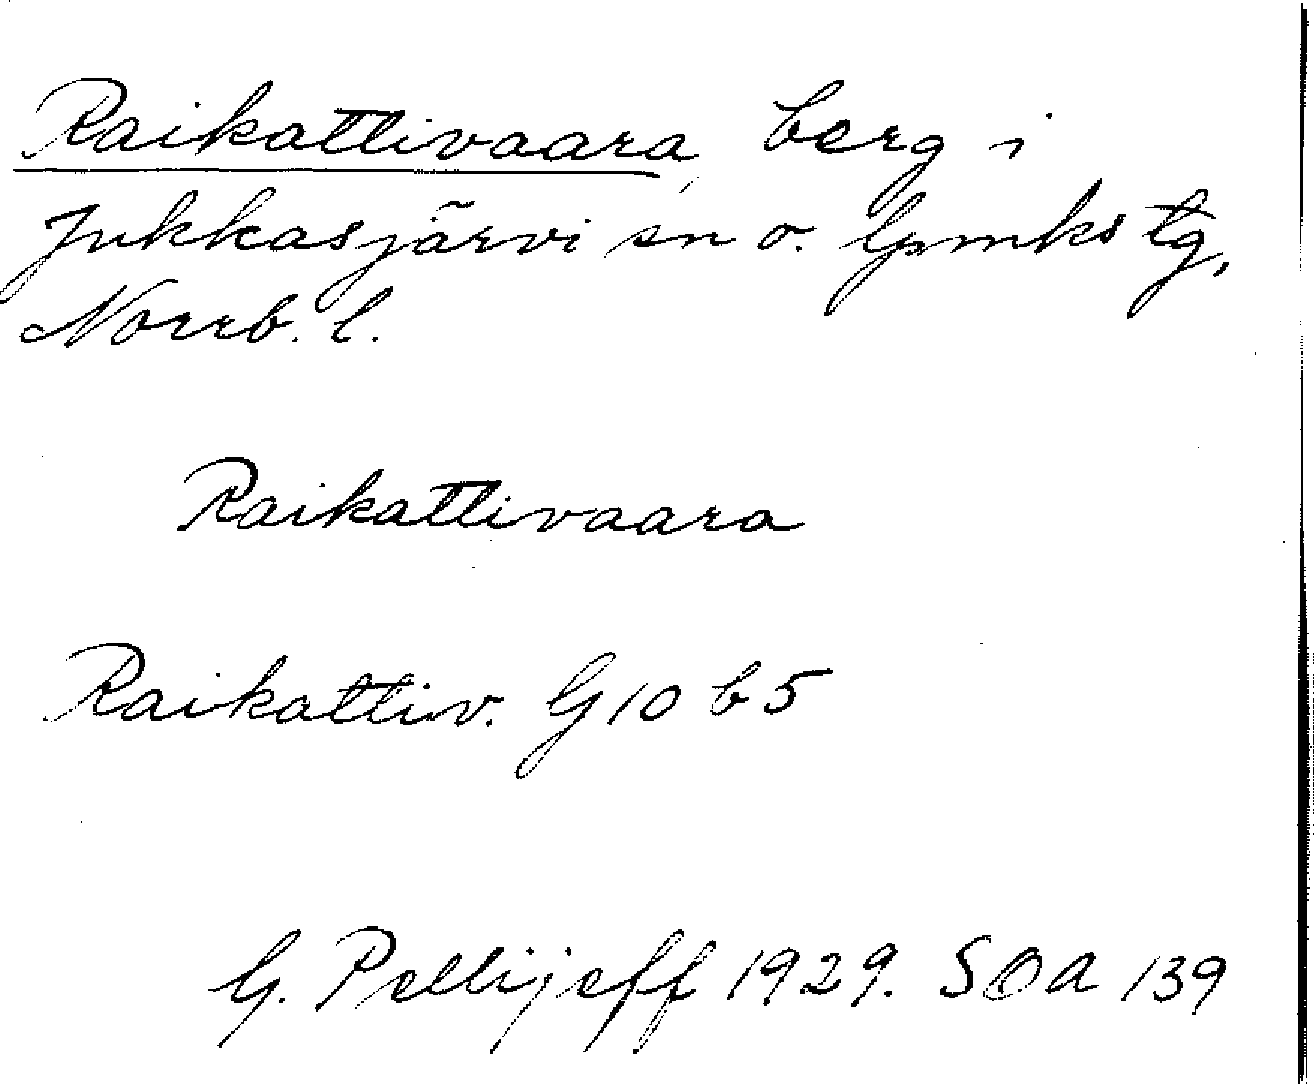 Raikattivaara, berg i
Jukkasjärvi sn o. lpmks tg,
Norrb. l.
Raikattivaara
Raikattiv. G 10 b 5
G. Pellijeff 1929. SOA 139